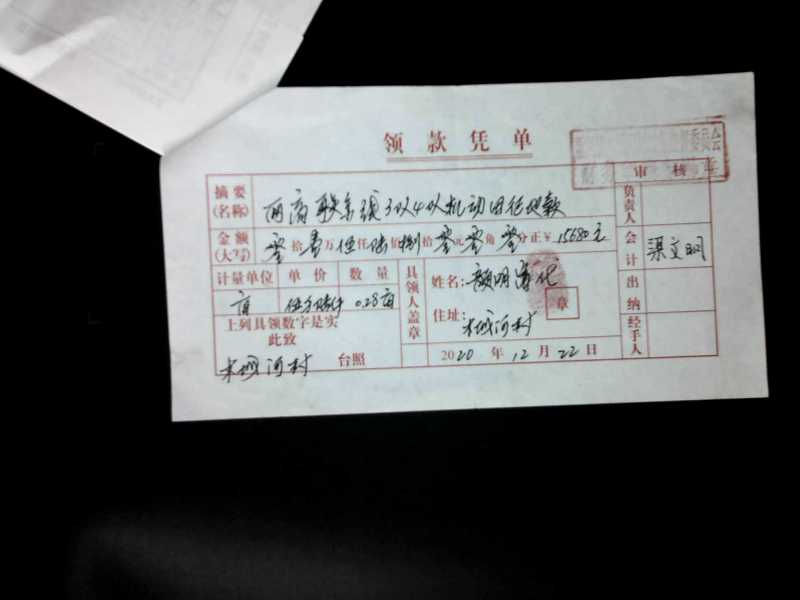 领款凭单
审核
摘要(名称) 两高联系线3队4队机动田征地款
负责人
金额(大写) 零拾壹万伍仟陆佰捌拾零元零角零分正¥15680元
会计 梁文明
计量单位 单价 数量
亩 伍万陆仟 0.28亩
具领人盖章
姓名:颜明 代
章
住址:木城河村
出纳
上列具领数字是实
此致
木城河村 台照
2020年12月22日
经手人